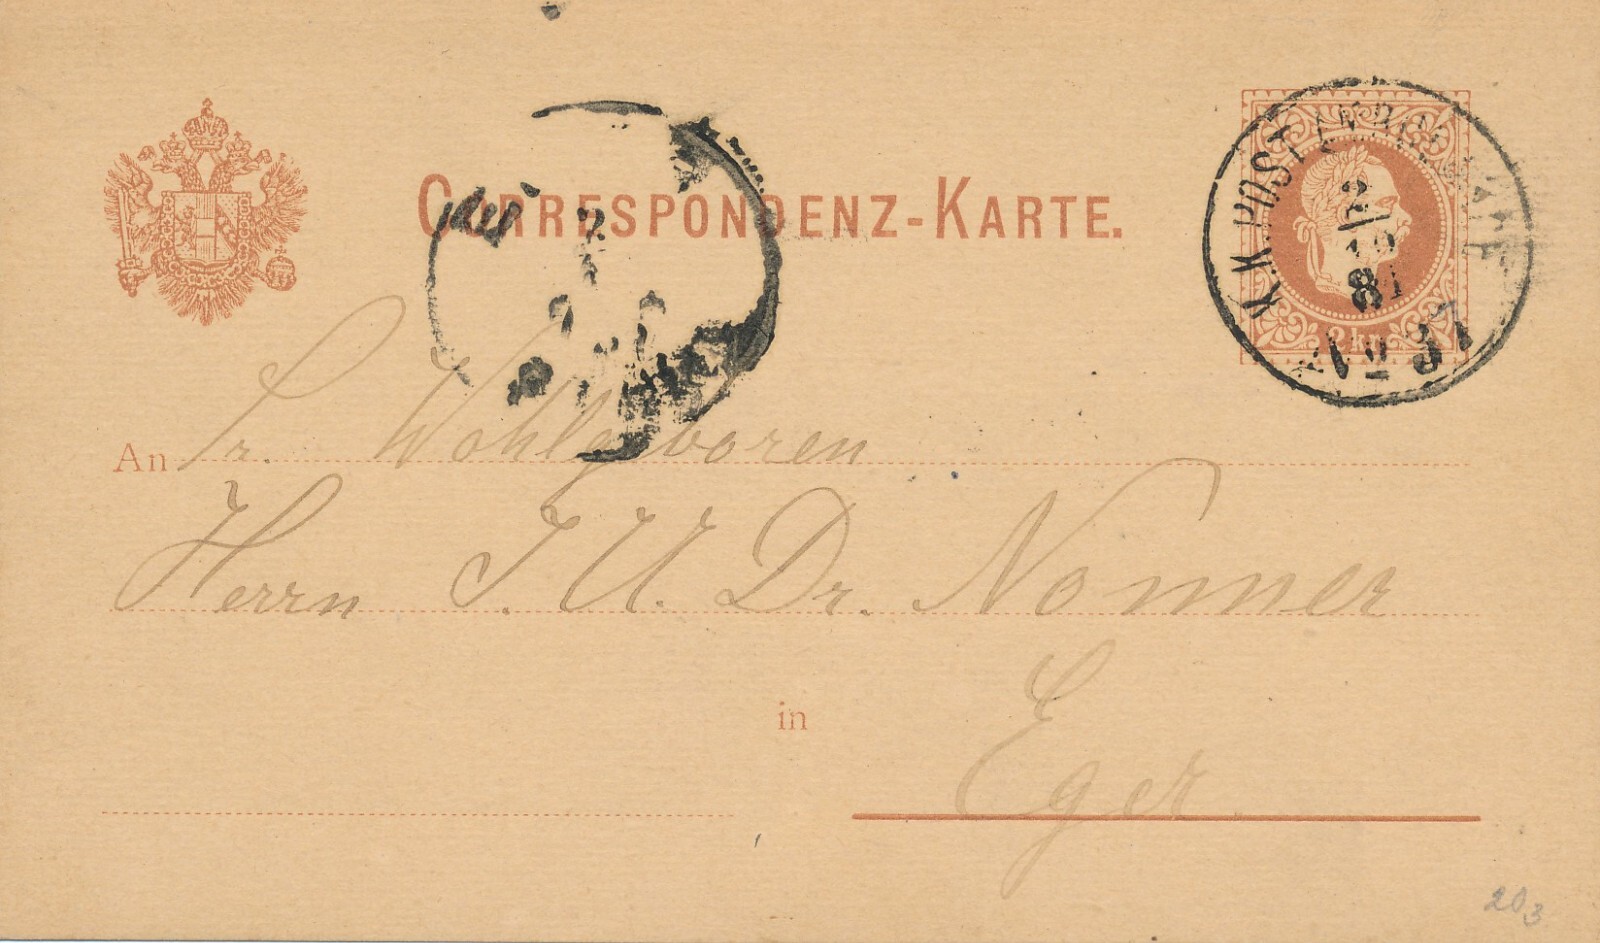 CORRESPONDENZ-KARTE.
K.K. POST
2/10
81
No 37
2 kr
An Sr. Wohlgeboren
Herrn J. U. Dr. Nonner
in Eger
20 3